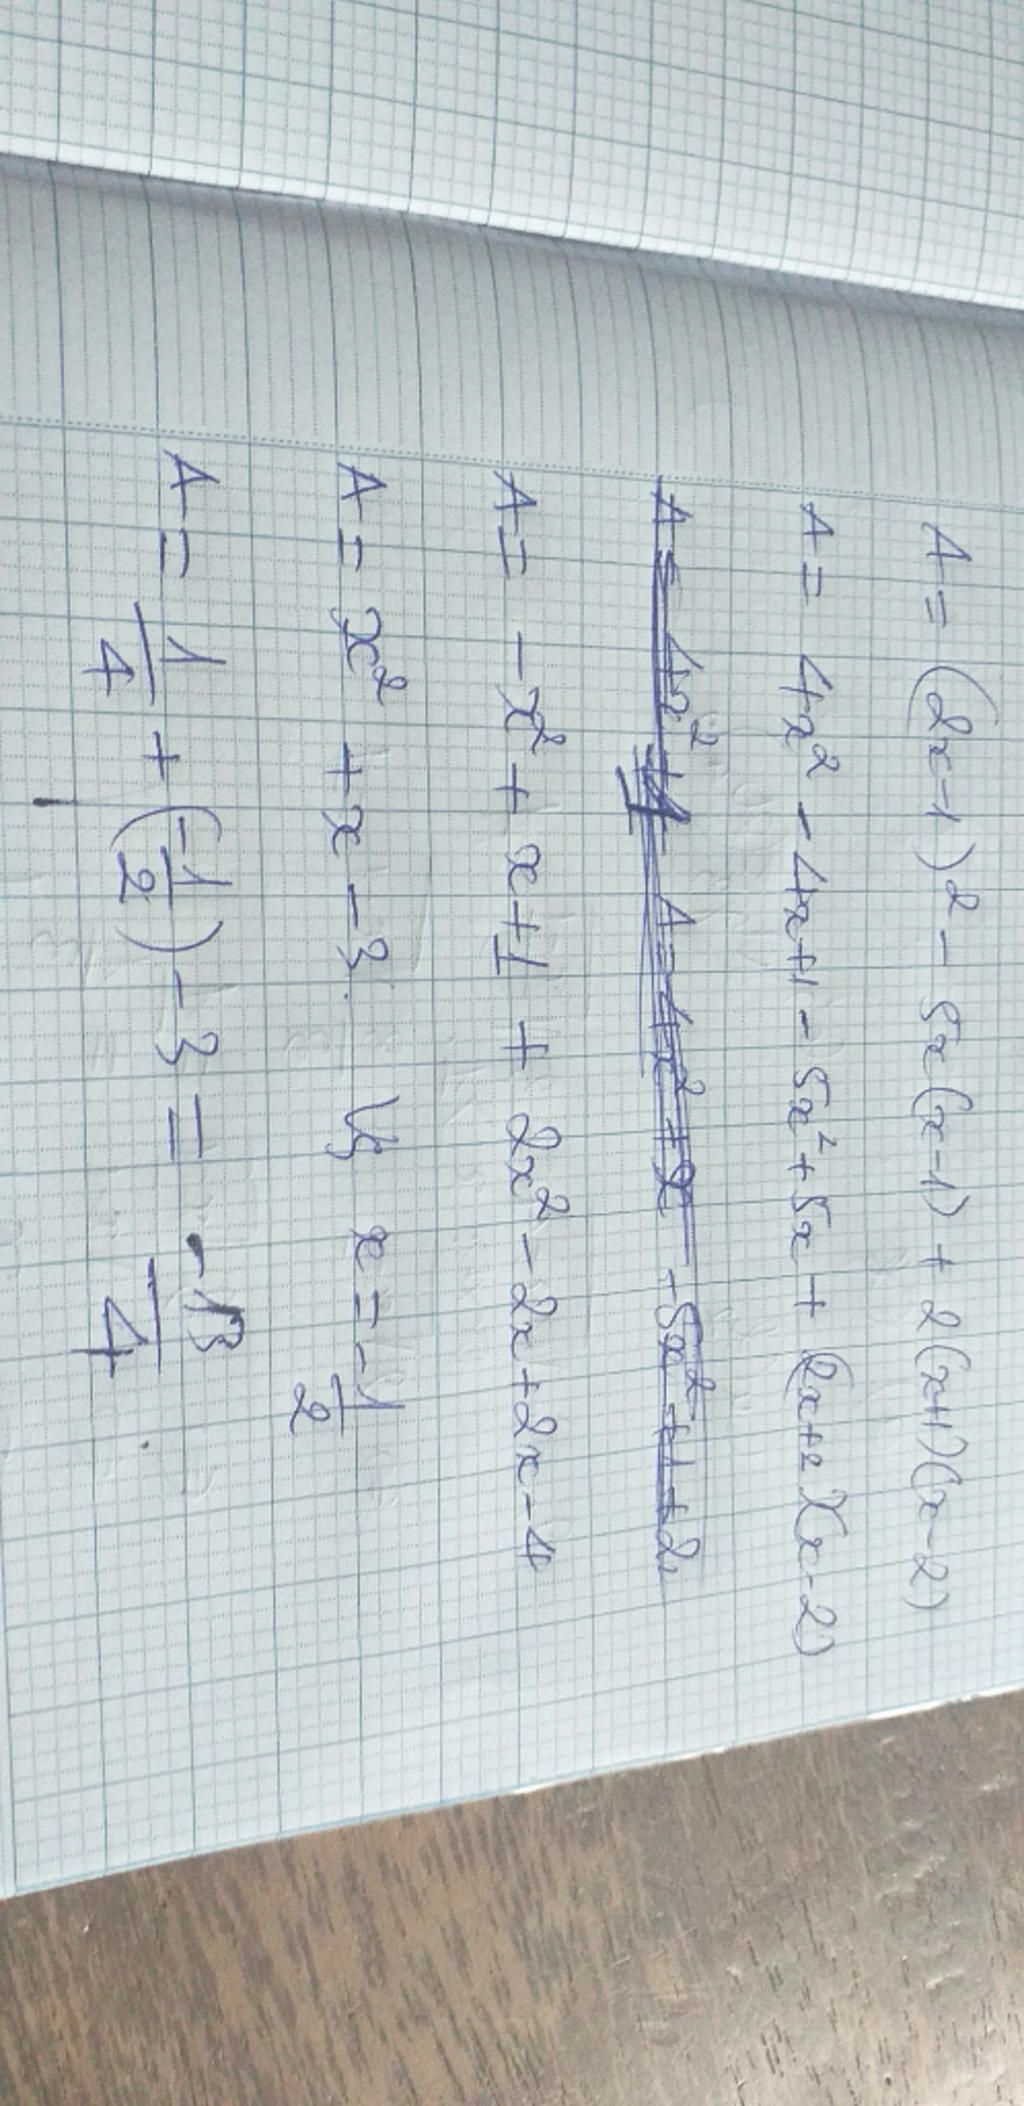 A = (2x-1)² - 5x(x-1) + 2(x+1)(x-2)
A = 4x² - 4x+1 - 5x² + 5x + (2x+2)(x-2)
A = - x² + x+1 + 2x² - 2x+2x - 4
A = x² + x - 3. x = -1/2
A = 1/4 + (-1/2) - 3 = -13/4